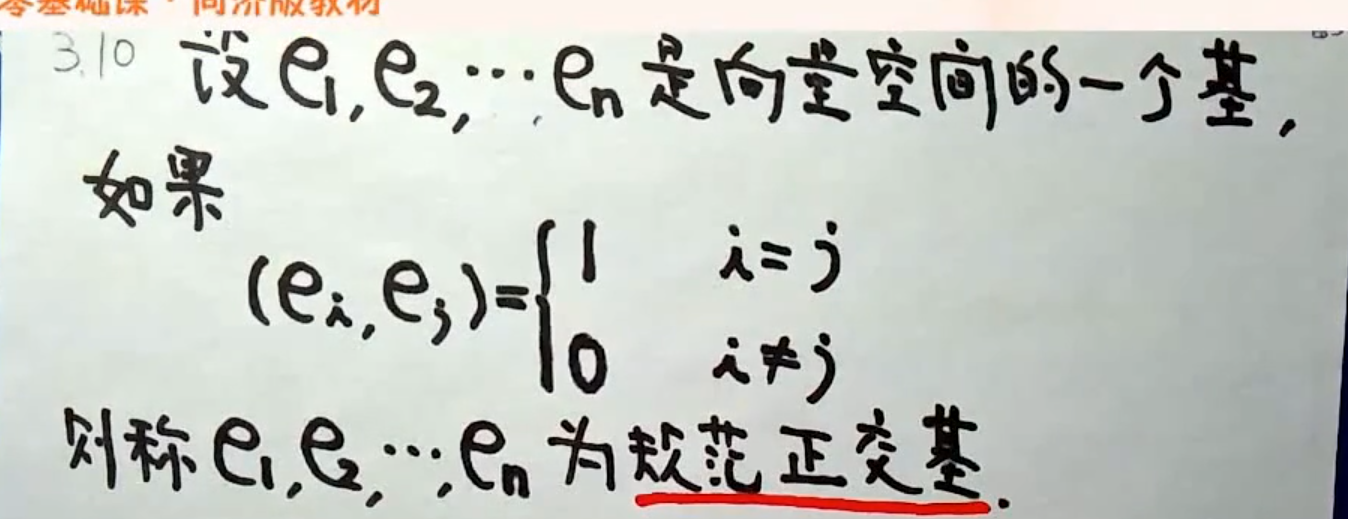 零基础课·同济版教材
3.10 设e₁,e₂,…,eₙ是向量空间的一个基,
如果
(eᵢ,eⱼ)={1 i=j
0 i≠j
则称e₁,e₂,…,eₙ为规范正交基.